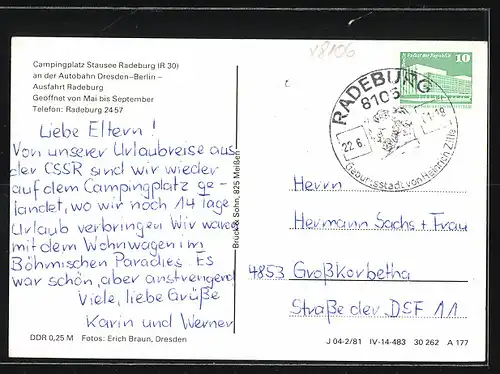 Campingplatz Stausee Radeburg (R 30)
an der Autobahn Dresden–Berlin –
Ausfahrt Radeburg
Geöffnet von Mai bis September
Telefon: Radeburg 24 57
Liebe Eltern!
Von unserer Urlaubreise aus
der CSSR sind wir wieder
auf dem Campingplatz ge-
landet, wo wir noch 14 Tage
Urlaub verbringen. Wir waren
mit dem Wohnwagen im
Böhmischen Paradies. Es
war schön, aber anstrengend
Viele, liebe Grüße
Karin und Werner
DDR 0,25 M Fotos: Erich Braun, Dresden
Brück & Sohn, 825 Meißen
v8106
10
RADEBURG
8106
22.6.
Geburtsstadt von Heinrich Zille
Herrn
Hermann Sachs + Frau
4853 Großkorbetha
Straße der DSF 11
J 04-2/81 IV-14-483 30 262 A 177